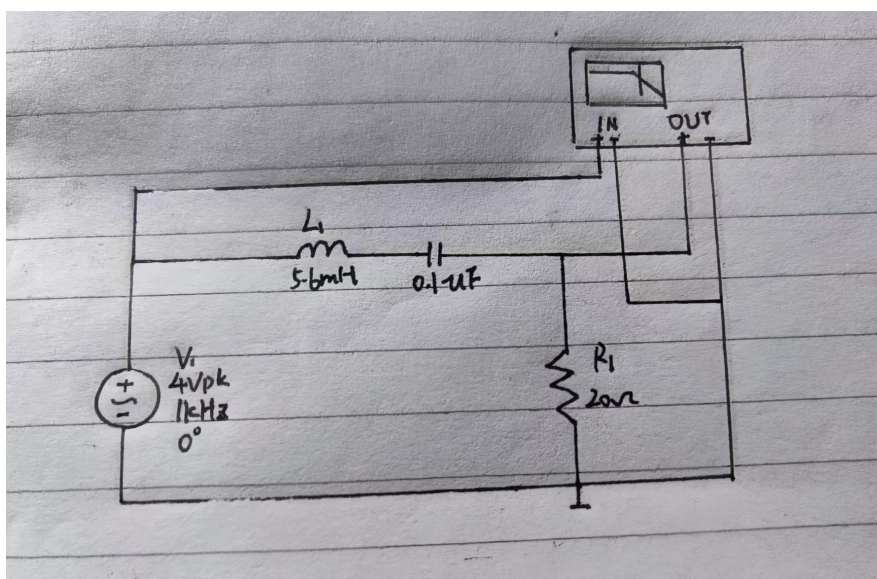 IN OUT
+ - + -
L₁
5.6mH 0.1uF
V₁
4Vpk
1kHz
0°
+
-
R₁
20Ω